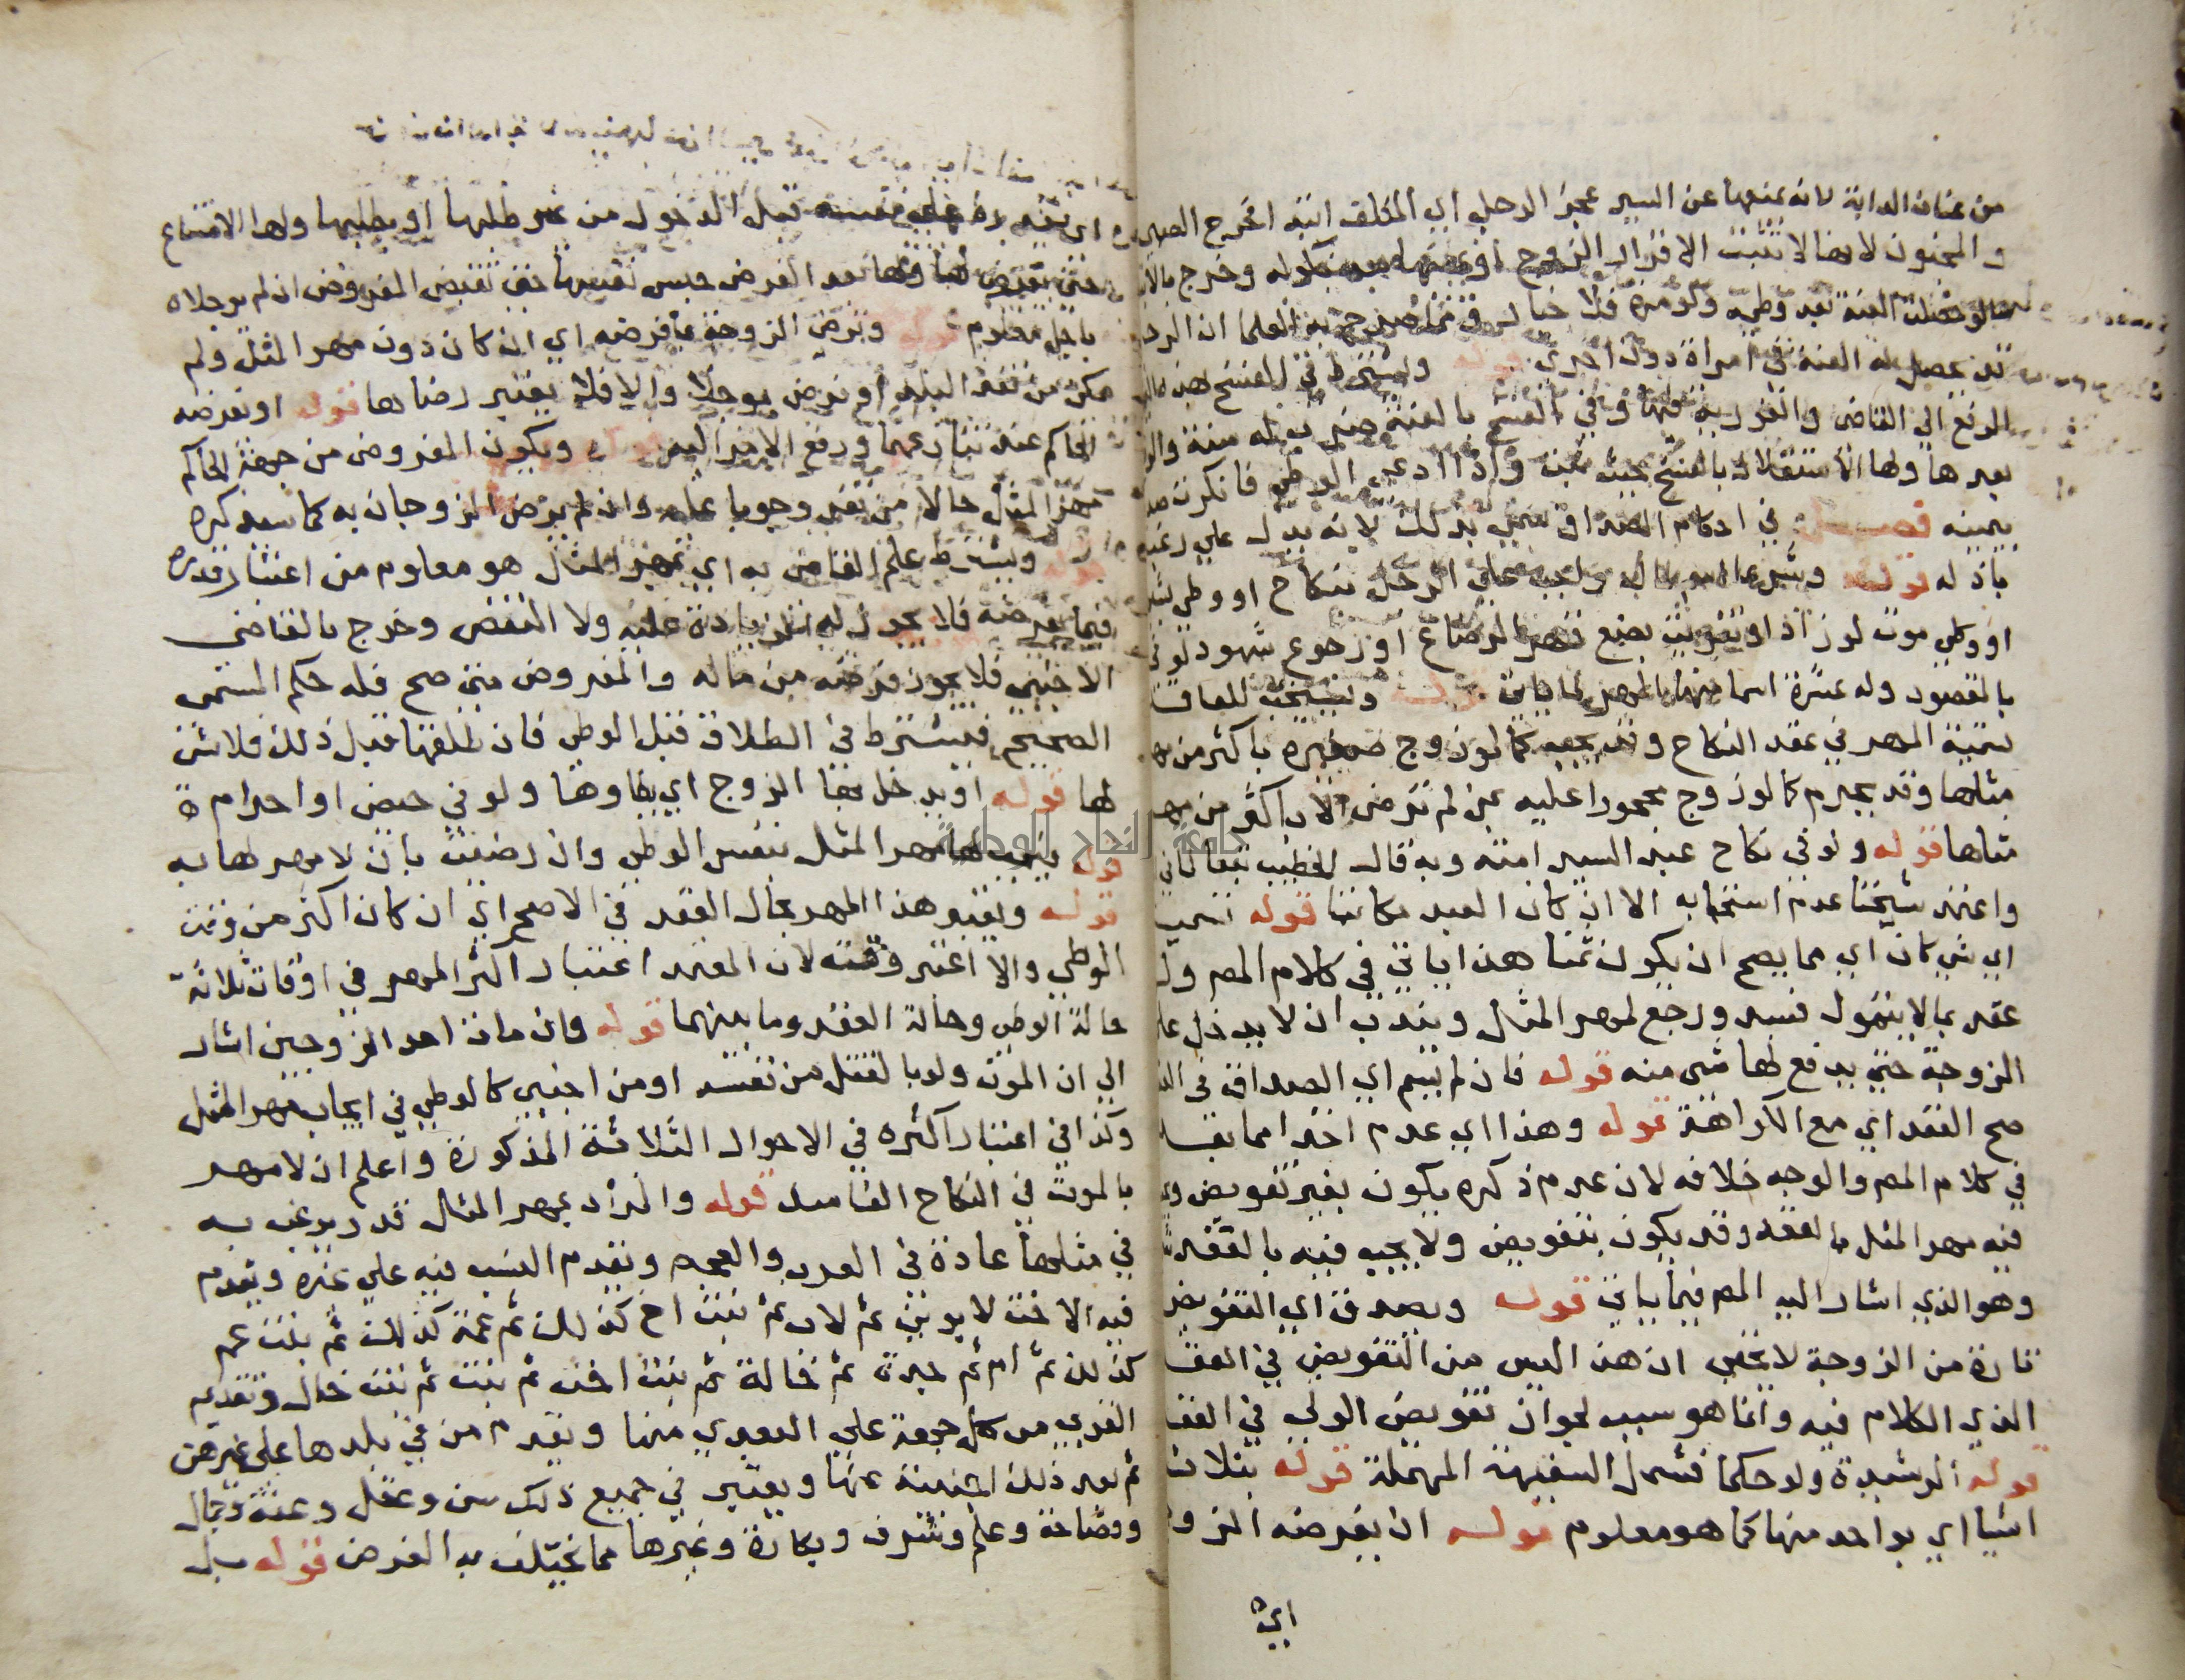 من عنان الدابة لانه يمنعها عن السير عجز الرجل اي المكلف اذ به اخرج الصبي
والمجنون لانها لا تثبت الا باقرار الزوج او يمينها بعد نكوله وخرج بالا
ما لو حصلت العنة بعد وطيه ولو مرة فلا خيار فيها صرح به العلما ان الرجل
قد يحصل له العنة في امراة دون اخرى قوله ويشترط في الفسخ بهذه
الرفع الى القاضي والفورية فيها وفي الفسخ بالعنة ضرب له سنة
بعدها ولها الاستقلال بالفسخ بحيث ثبت واذا ادعى الوطي فانكرت صدق
بيمينه فصل في احكام الصداق سمي بذلك لانه يدل على رغبة
باذله قوله وشرعا اسم لمال واجب على الرجل بنكاح او وطي شبهة
او وطي موت لو زاد او تفويت بضع قهرا كرضاع او رجوع شهود
بالمقصود وله عشرة اسما منها المهر لما ياتي قوله ويستحب للعاقد
تسمية المهر في عقد النكاح وقد يجب كما لو زوج صغيره باكثر من مهر
مثلها وقد يحرم كما لو زوج محجورا عليه بمن لم ترض الا باكثر من مهر
مثلها قوله ولو في نكاح عبد السيد امته وبه قال الخطيب تبعا
واعتمد شيخنا عدم استحبابه الا ان كان العبد مكاتبا قوله تسمية
اي شي كان اي مما يصح ان يكون ثمنا هذا ياتي في كلام المص
عقد بما لا يتمول فسد ورجع لمهر المثل ويندب ان لا يدخل على
الزوجة حتى يدفع لها شي منه قوله فان لم يسم اي الصداق في
صح العقد اي مع الكراهة قوله وهذا اي عدم اخذا مما
في كلام المص والوجه خلافه لان عدم ذكره يكون بغير تفويض
فيه مهر المثل بالعقد وقد يكون بتفويض ولا يجب فيه بالعقد
وهو الذي اشار اليه المص فيما ياتي قوله ويصدق اي التفويض
تارة من الزوجة لا يخفى ان هذا ليس من التفويض في العقد
الذي الكلام فيه وانما هو سبب لجواز تفويض الولي في العقد
قوله الرشيدة ولو حكما فشمل السفيهة المهملة قوله بثلاث
اشيا اي بواحد منها كما هو معلوم قوله ان يفرضه الزوج
اي
اي بتقديره على نفسه قبل الدخول من غير طلبها او بطلبها ولها الامتناع
حتى يفرض لها ولها بعد الفرض حبس نفسها حتى تقبض المفروض ان لم يوجلاه
باجل معلوم قوله وترضى الزوجة بما فرضه اي ان كان دون مهر المثل ولم
يكن من نقد البلد او فرض موجلا والا فلا يعتبر رضاها قوله او يفرضه
الحاكم عند تنازعهما ورفع الامر اليه قوله ويكون المفروض من جهة الحاكم
مهر المثل حالا من نقد وجوبا عليه وان لم يرض الزوجان به كما سيذكره
قوله ويشترط علم القاضي به اي بمهر المثل هو معلوم من اعتبار قدره
فيما يفرضه فلا يجوز له الزيادة عليه ولا النقص وخرج بالقاضي
الاجنبي فلا يجوز فرضه من ماله والمفروض متى صح فله حكم المسمى
الصحيح فيتشطر في الطلاق قبل الوطي فان طلقها قبل ذلك فلا شي
لها قوله او يدخل بها الزوج اي يطاوها ولو في حيض او احرام
قوله فيجب لها مهر المثل بنفس الوطي وان رضيت بان لا مهر لها به
قوله ويعتبر هذا المهر بحال العقد في الاصح اي ان كان اكثر من وقت
الوطي والا اعتبر وقته لان المعتمد اعتبار اكثر المهر في اوقات ثلاثة
حالة الوطي وحالة العقد وما بينهما قوله وان مات احد الزوجين اشار
الى ان الموت ولو بالقتل من نفسه او من اجنبي كالوطي في ايجاب مهر المثل
وكذا في اعتبار اكثره في الاحوال الثلاثة المذكورة واعلم ان لا مهر
بالموت في النكاح الفاسد قوله والمراد بمهر المثل قدر يرغب به
في مثلها عادة في العرب والعجم ويقدم النسب فيه على غيره ويقدم
فيه الاخت لابوين ثم لاب ثم بنت اخ كذلك ثم عمة كذلك ثم بنت عم
كذلك ثم ام ثم جدة ثم خالة ثم بنت اخت ثم بنت ثم بنت خال وتقديم
القربى من كل جهة على البعدى منها ويقدم من في بلدها على غيرهن
ثم بعد ذلك اجنبية عنها ويعتبر في جميع ذلك سن وعقل وعفة وجمال
وفصاحة وعلم وشرف وبكارة وغيرها مما يختلف به الغرض قوله